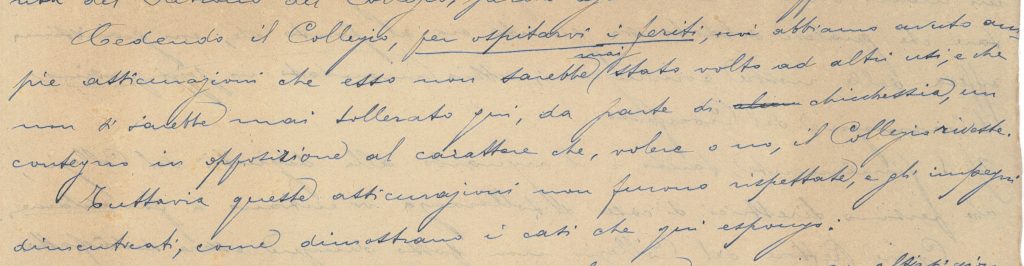 Cedendo il Collegio, per ospitarvi i feriti, noi abbiamo avuto am
pie assicurazioni che esso non sarebbe mai stato volto ad altri usi, e che
non si sarebbe mai tollerato qui, da parte di chicchessia, un
contegno in opposizione al carattere che, volere o no, il Collegio riveste.
Tuttavia queste assicurazioni non furono rispettate, e gli impegni
dimenticati, come dimostrano i casi che qui espongo: